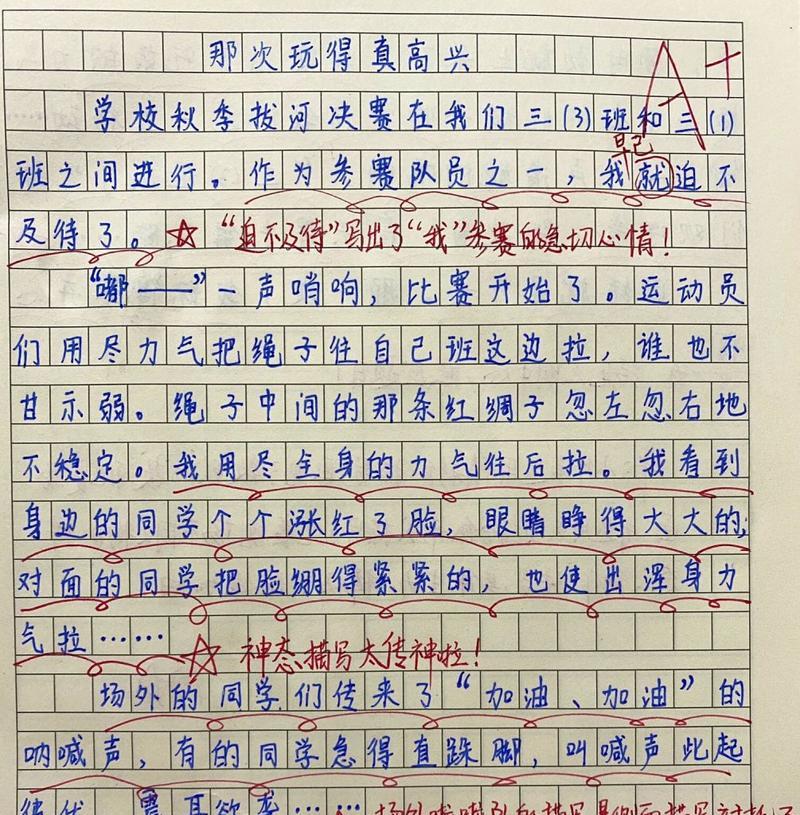 那次玩得真高兴
A+
学校秋季拔河决赛在我们三(3)班和三(1)
早已
班之间进行。作为参赛队员之一，我就迫不
及待了。☆“迫不及待”写出了“我”参赛的急切心情！
“嘟——”一声哨响，比赛开始了。运动员
们用尽力气把绳子往自己班这边拉，谁也不
甘示弱。绳子中间的那条红绸子忽左忽右地
不稳定。我用尽全身的力气往后拉。我看到
身边的同学个个涨红了脸，眼睛睁得大大的；
对面的同学把脸绷得紧紧的，也使出浑身力
气拉……
☆神态描写太传神啦！
场外的同学们传来了“加油、加油”的
呐喊声，有的同学急得直跺脚，叫喊声此起
彼伏，震耳欲聋……